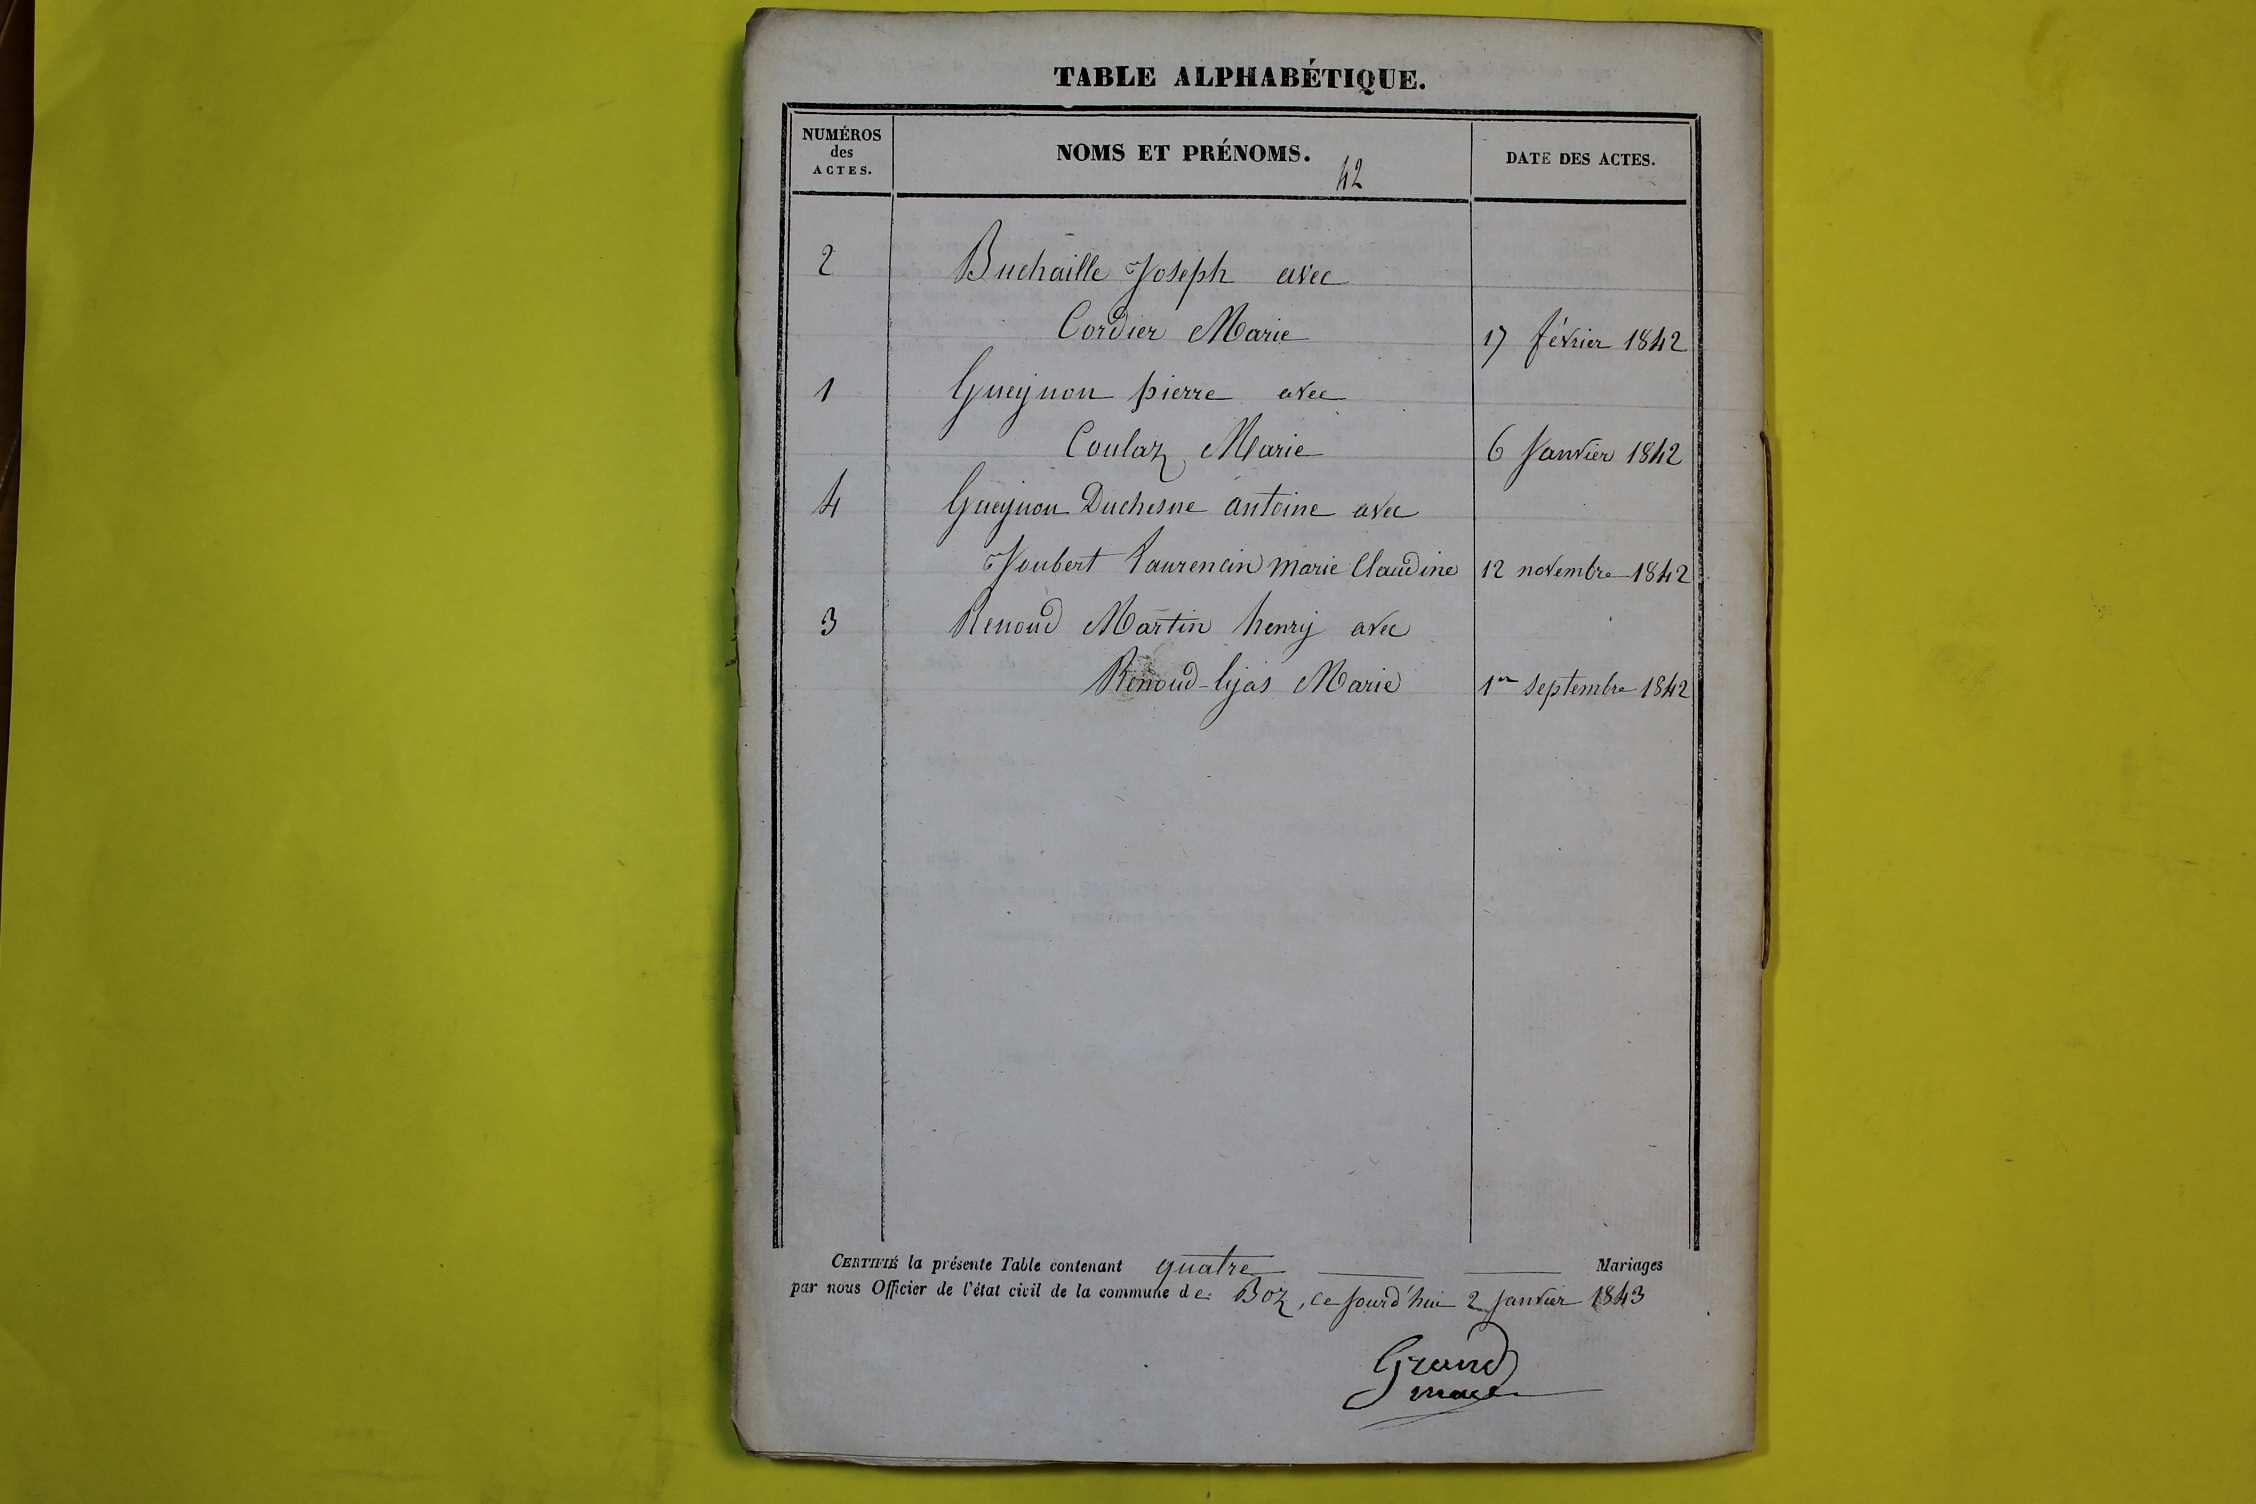 TABLE ALPHABÉTIQUE.
NUMÉROS des ACTES.
NOMS ET PRÉNOMS.
DATE DES ACTES.
42
2 Buchaille Joseph avec
Cordier Marie 17 février 1842
1 Gueynon pierre avec
Coulaz Marie 6 Janvier 1842
4 Gueynon Duchesne antoine avec
Joubert Laurencin marie Claudine 12 novembre 1842
3 Renoud Martin henry avec
Renoud-lyas Marie 1er septembre 1842
CERTIFIÉ la présente Table contenant quatre Mariages
par nous Officier de l'état civil de la commune de Boz, ce jourd'hui 2 janvier 1843
Grand